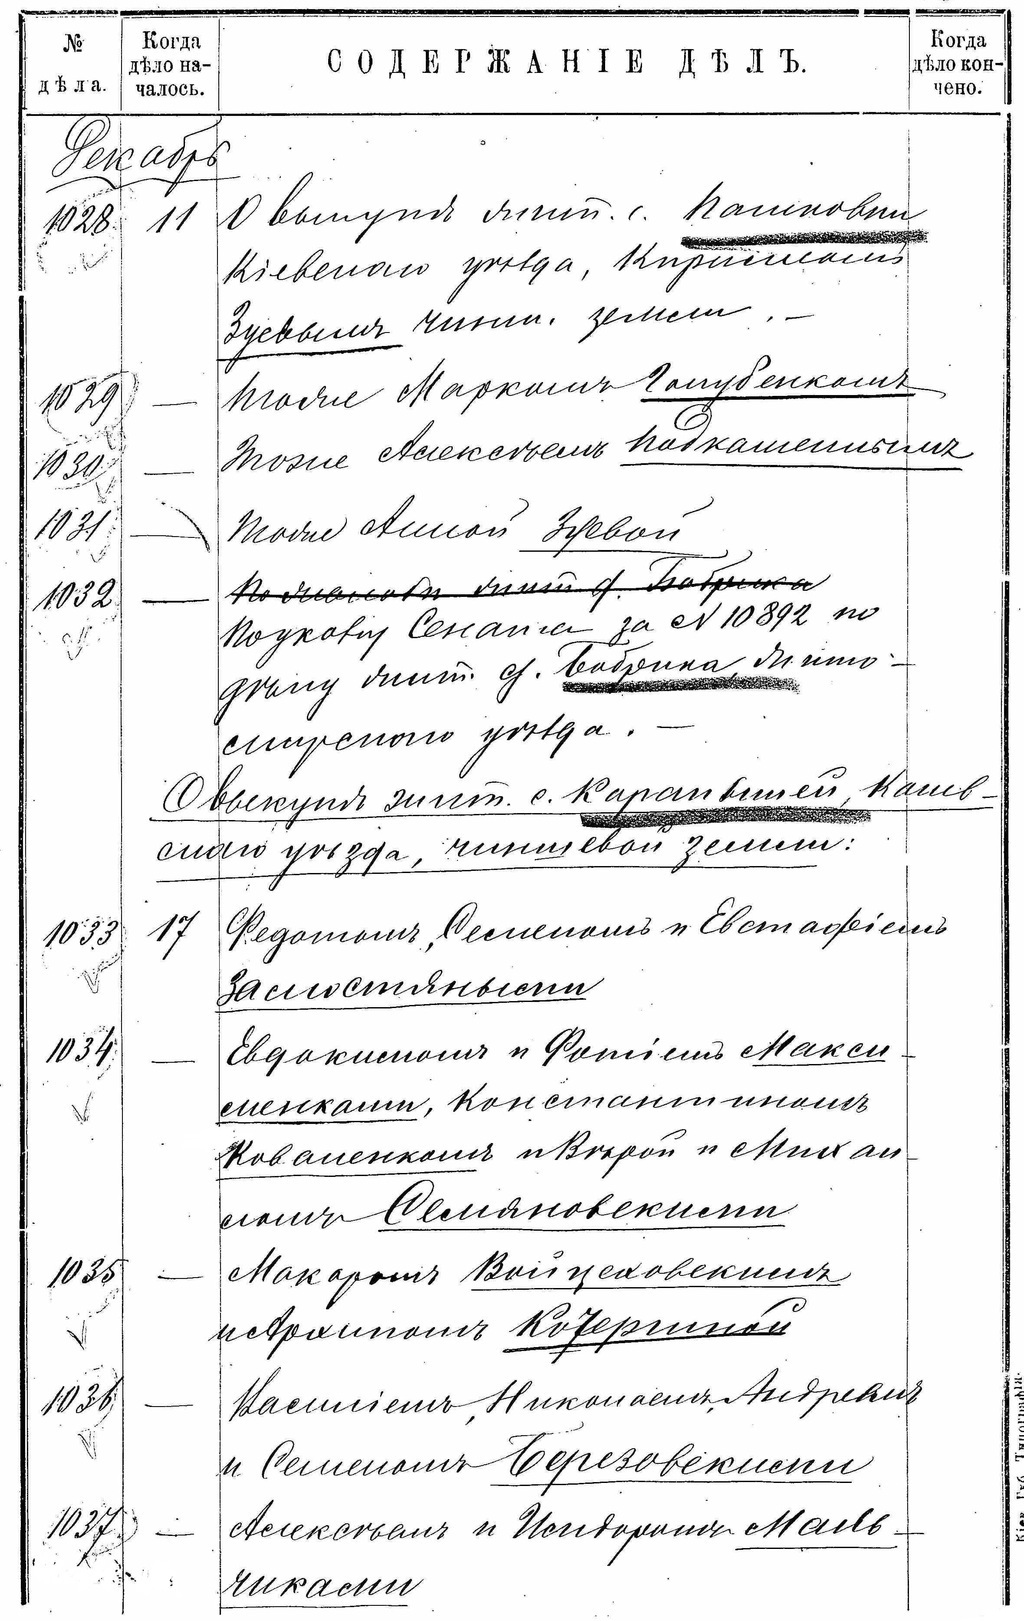 № дѣла.
Когда дѣло началось.
СОДЕРЖАНІЕ ДѢЛЪ.
Когда дѣло кончено.
Декабрь
1028. 11 О выкупѣ жит. с.
Кіевскаго уѣзда,
Зуевымъ чинш. земли. —
1029 — Тоже Маркомъ Голубенкомъ
1030 — Тоже Алексѣемъ Подкаменнымъ
1031 — Тоже Анной Зуевой
1032 —
По указу Сената за № 10892 по
дѣлу жит. д. Бобрика, Жито-
мирскаго уѣзда. —
О выкупѣ жит. с. Карапышей, Канев-
скаго уѣзда, чиншевой земли:
1033 17 Федотомъ, Семеномъ и Евстафіемъ
Замостяными
1034. — Евдокимомъ и Фотіемъ Макси-
менками, Константиномъ
Коваленкомъ и Вѣрой и Михаи-
ломъ Семяновскими
1035 — Макаромъ Войцеховскимъ
1036 — Василіемъ, Николаемъ, Андреемъ
и Семеномъ Березовскими
1037 — Алексѣемъ и Исидоромъ Маль-
чиками
Кіев. Губ. Типографія.